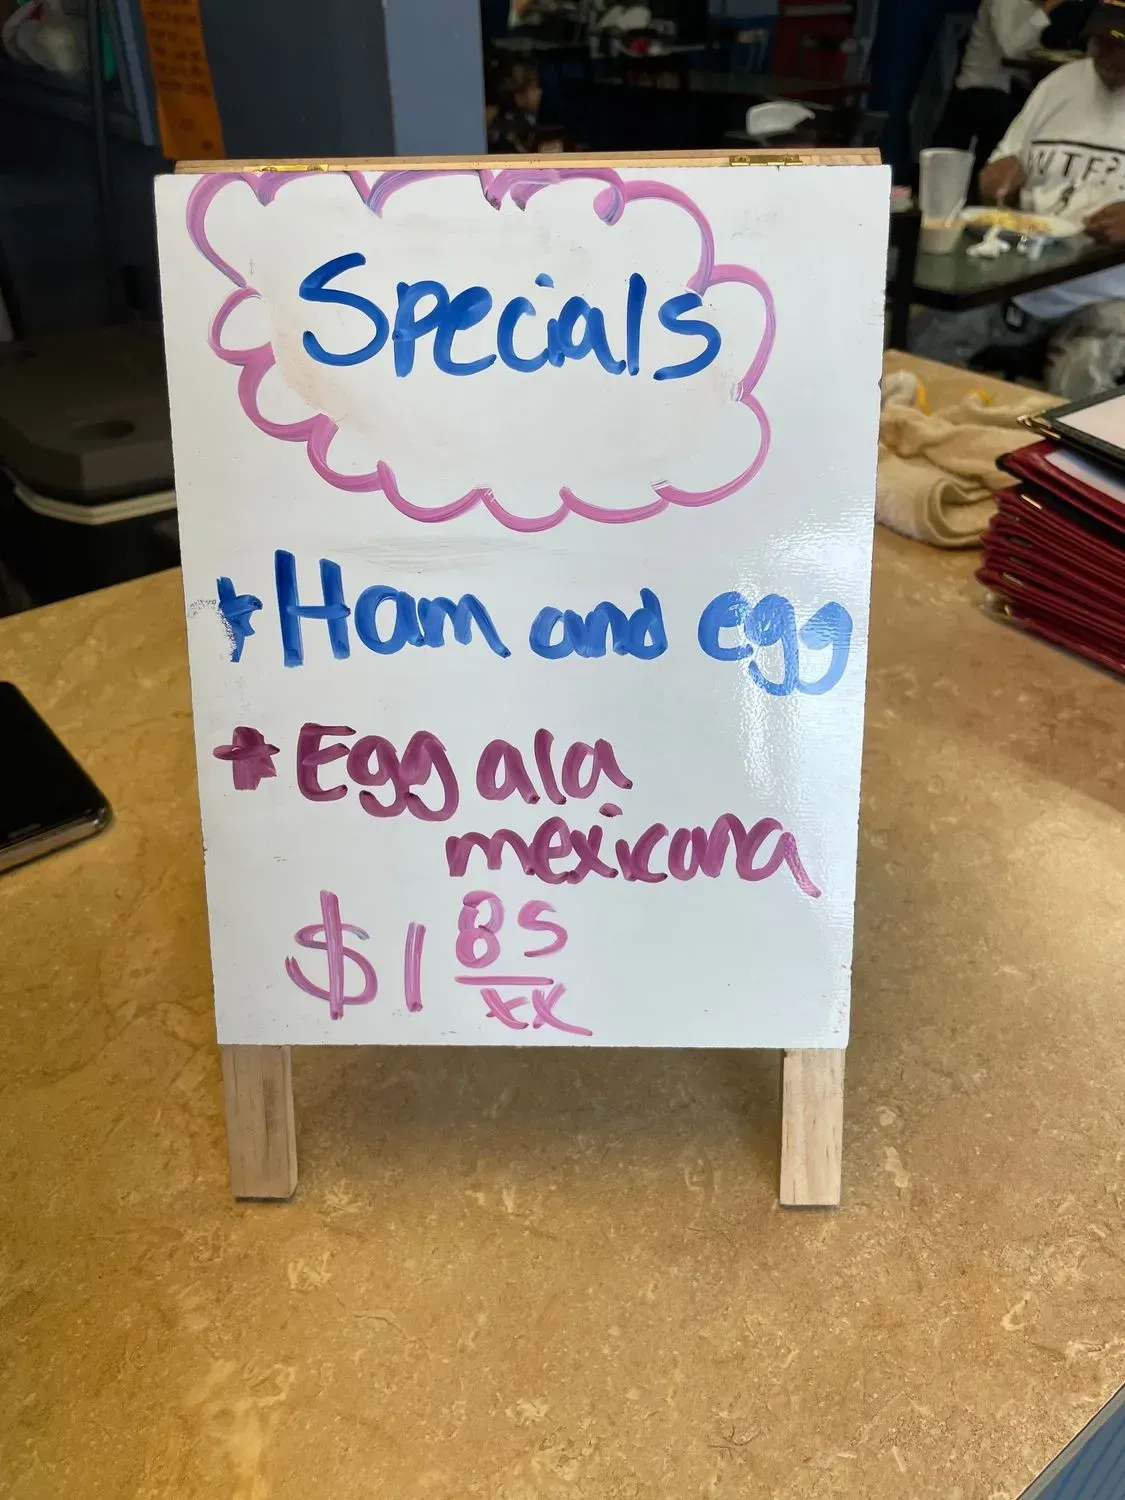 Specials
* Ham and egg
* Egg ala
mexicana
$1 85
xx
WTF?